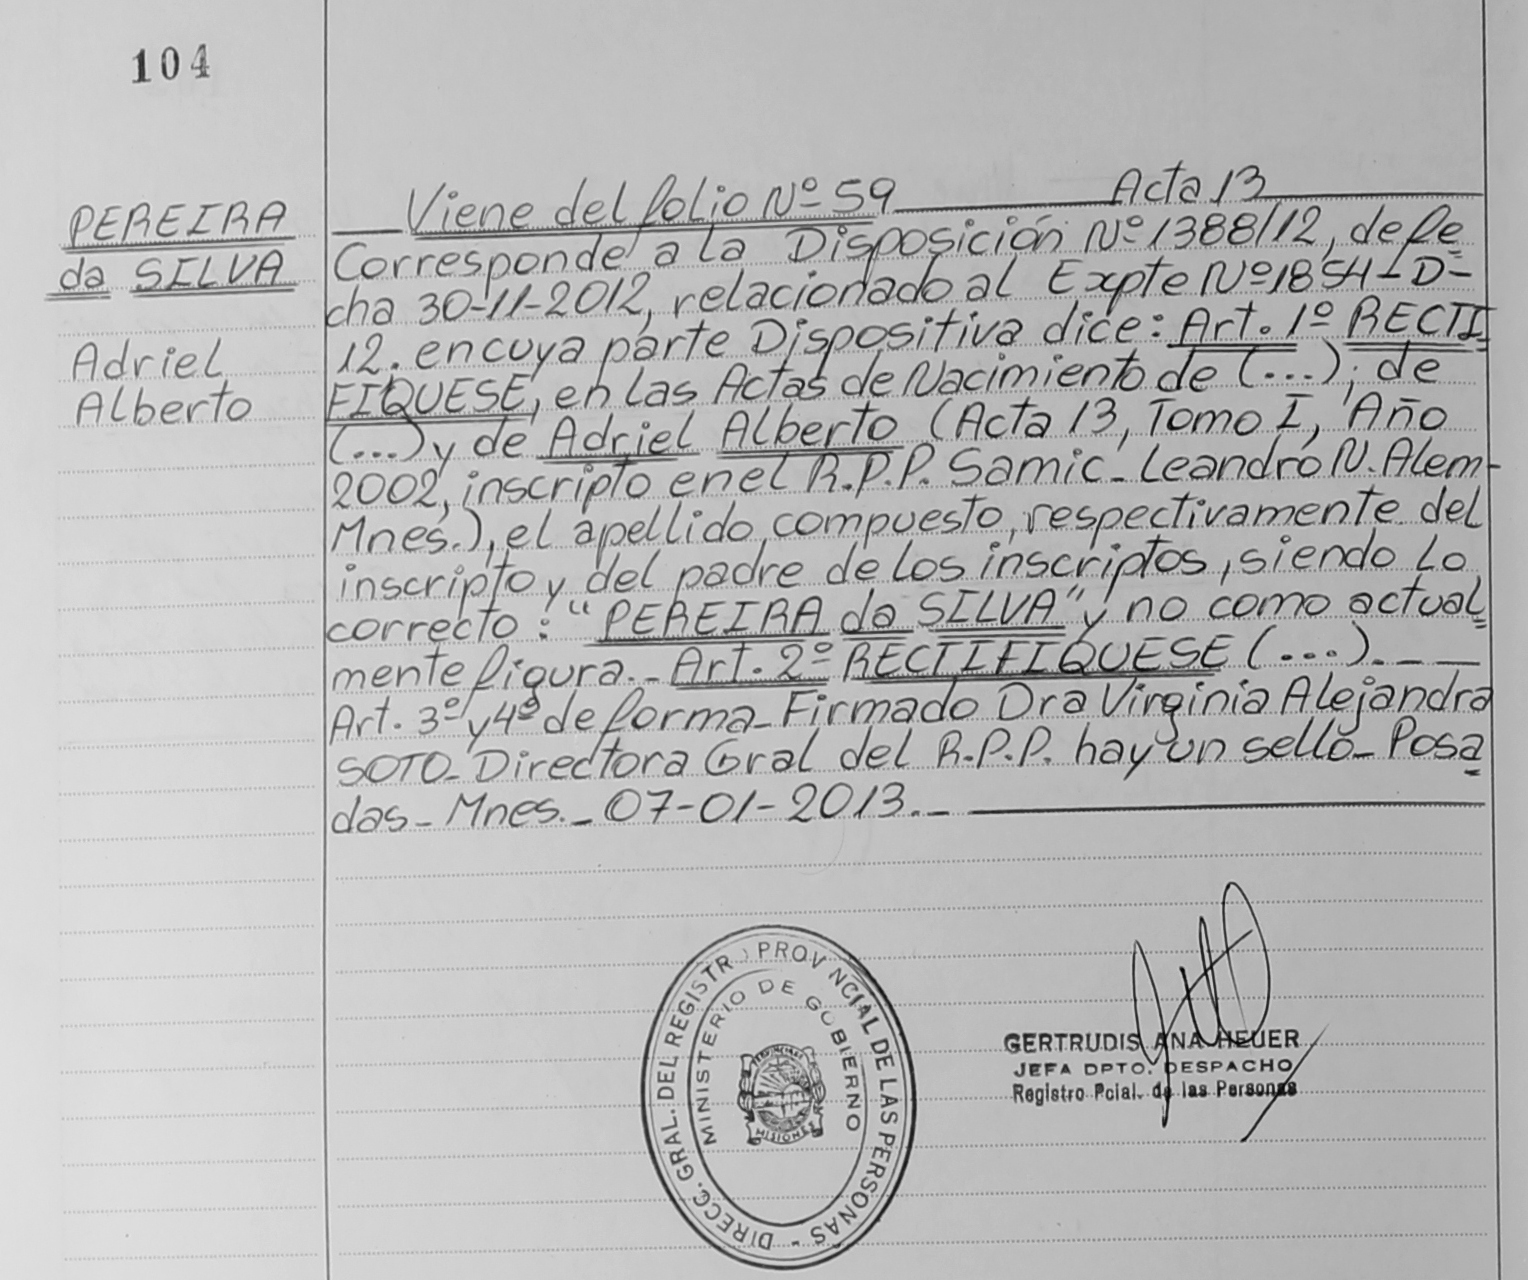 104
PEREIRA
da SILVA
Adriel
Alberto
Viene del folio Nº 59 Acta 13
Corresponde a la Disposición Nº 1388/12, de fe
cha 30-11-2012, relacionado al Expte Nº 1854-D-
12. en cuya parte Dispositiva dice: Art. 1º RECTI
FIQUESE, en las Actas de Nacimiento de (...), de
(...) y de Adriel Alberto (Acta 13, Tomo I, Año
2002, inscripto en el R.P.P. Samic_ Leandro N. Alem-
Mnes.), el apellido compuesto, respectivamente del
inscripto y del padre de los inscriptos, siendo Lo
correcto: "PEREIRA da SILVA" y no como actual
mente figura._ Art. 2º RECTIFIQUESE (...)._ _ _
Art. 3º y 4º de forma_ Firmado Dra Virginia Alejandra
SOTO_ Directora Gral del R.P.P. hay un sello_ Posa
das_ Mnes._ 07-01-2013._
DIRECC. GRAL. DEL REGISTRO PROVINCIAL DE LAS PERSONAS -
MINISTERIO DE GOBIERNO
MISIONES
GERTRUDIS ANA HEUER
JEFA DPTO. DESPACHO
Registro Pcial. de las Personas